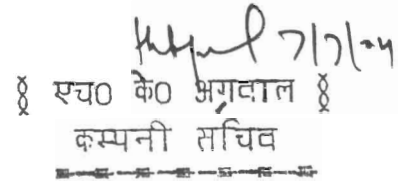 7/7/04
एच0 के0 अग्रवाल
कम्पनी सचिव